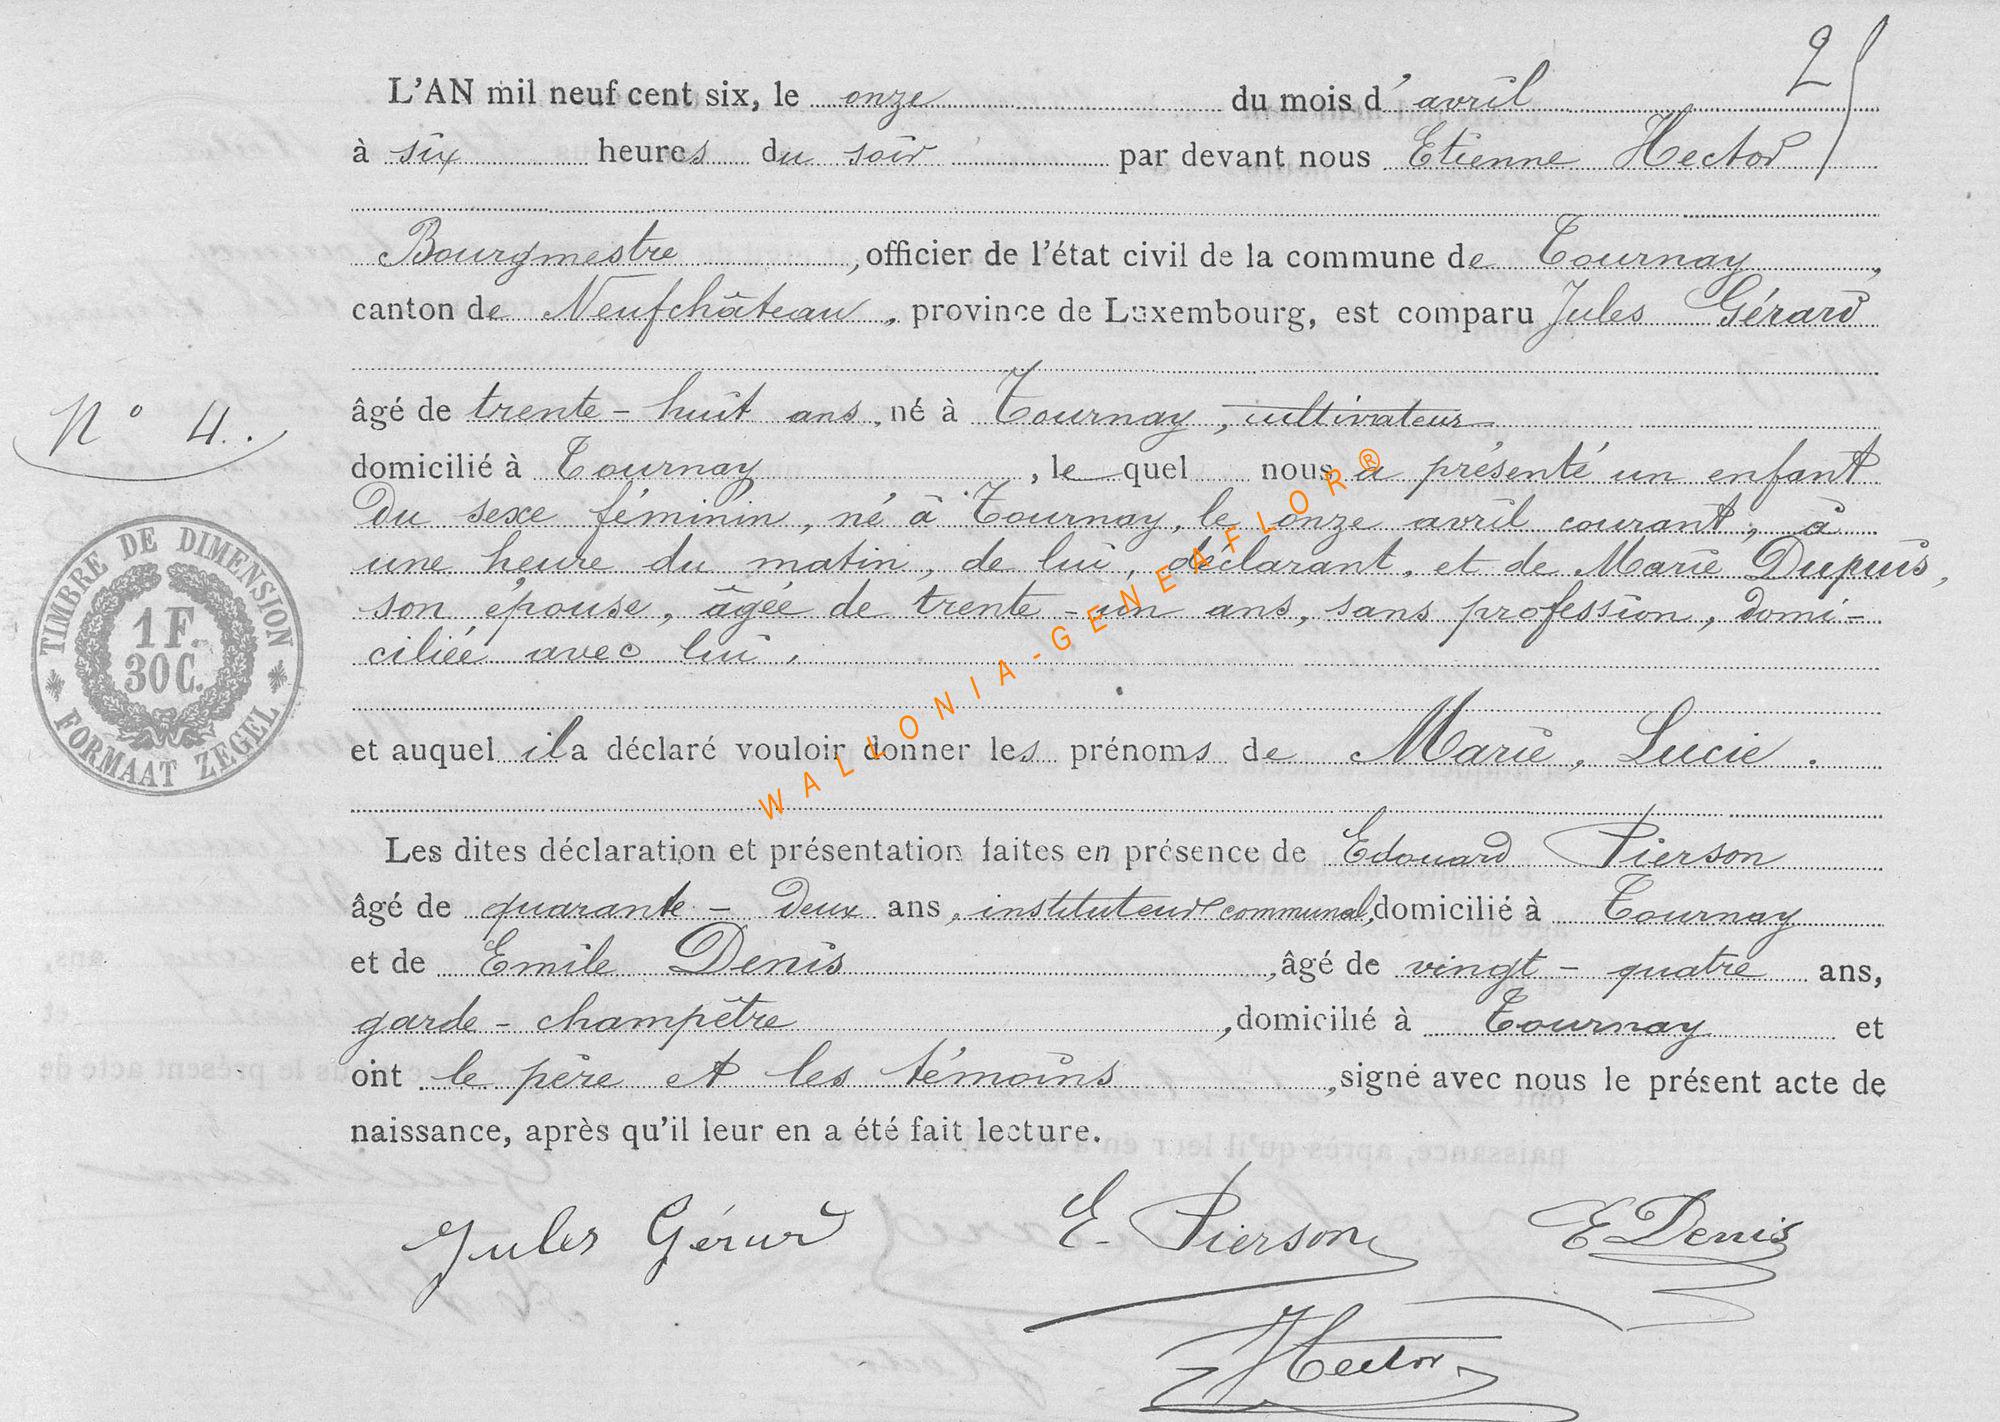 2
L'AN mil neuf cent six, le onze du mois d'avril
à six heures du soir par devant nous Etienne Hector
Bourgmestre, officier de l'état civil de la commune de Tournay,
canton de Neufchâteau, province de Luxembourg, est comparu Jules Gérard
âgé de trente-huit ans, né à Tournay, cultivateur
N° 4.
domicilié à Tournay, le quel nous a présenté un enfant
du sexe féminin, né à Tournay, le onze avril courant, à
une heure du matin, de lui, déclarant, et de Marie Dupuis,
son épouse, âgée de trente-un ans, sans profession, domi-
ciliée avec lui.
TIMBRE DE DIMENSION
1 F.
30 C.
FORMAAT ZEGEL
et auquel il a déclaré vouloir donner les prénoms de Marie, Lucie.
WALLONIA-GENEAFLOR®
Les dites déclaration et présentation faites en présence de Edouard Pierson
âgé de quarante-deux ans, instituteur communal, domicilié à Tournay
et de Emile Denis, âgé de vingt-quatre ans,
garde-champêtre, domicilié à Tournay et
ont le père et les témoins, signé avec nous le présent acte de
naissance, après qu'il leur en a été fait lecture.
Jules Gérard E. Pierson E Denis
Hector